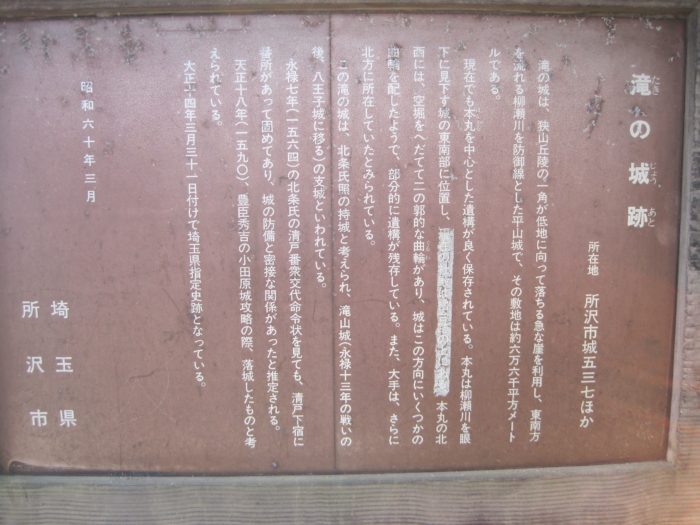 滝の城跡
たき じょう あと
所在地 所沢市城五三七ほか
滝の城は、狭山丘陵の一角が低地に向って落ちる急な崖を利用し、東南方
を流れる柳瀬川を防御線とした平山城で、その敷地は約六万六千平方メート
ルである。
現在でも本丸を中心とした遺構が良く保存されている。本丸は柳瀬川を眼
下に見下す城の東南部に位置し、本丸の北
西には、空堀をへだてて二の郭的な曲輪があり、城はこの方向にいくつかの
曲輪を配したようで、部分的に遺構が残存している。また、大手は、さらに
北方に所在していたとみられている。
この滝の城は、北条氏照の持城と考えられ、滝山城(永禄十三年の戦いの
後、八王子城に移る)の支城といわれている。
永禄七年(一五六四)の北条氏の清戸番衆交代命令状を見ても、清戸下宿に
番所があって固めてあり、城の防備と密接な関係があったと推定される。
天正十八年(一五九〇)、豊臣秀吉の小田原城攻略の際、落城したものと考
えられている。
大正十四年三月三十一日付けで埼玉県指定史跡となっている。
昭和六十年三月
埼玉県
所沢市